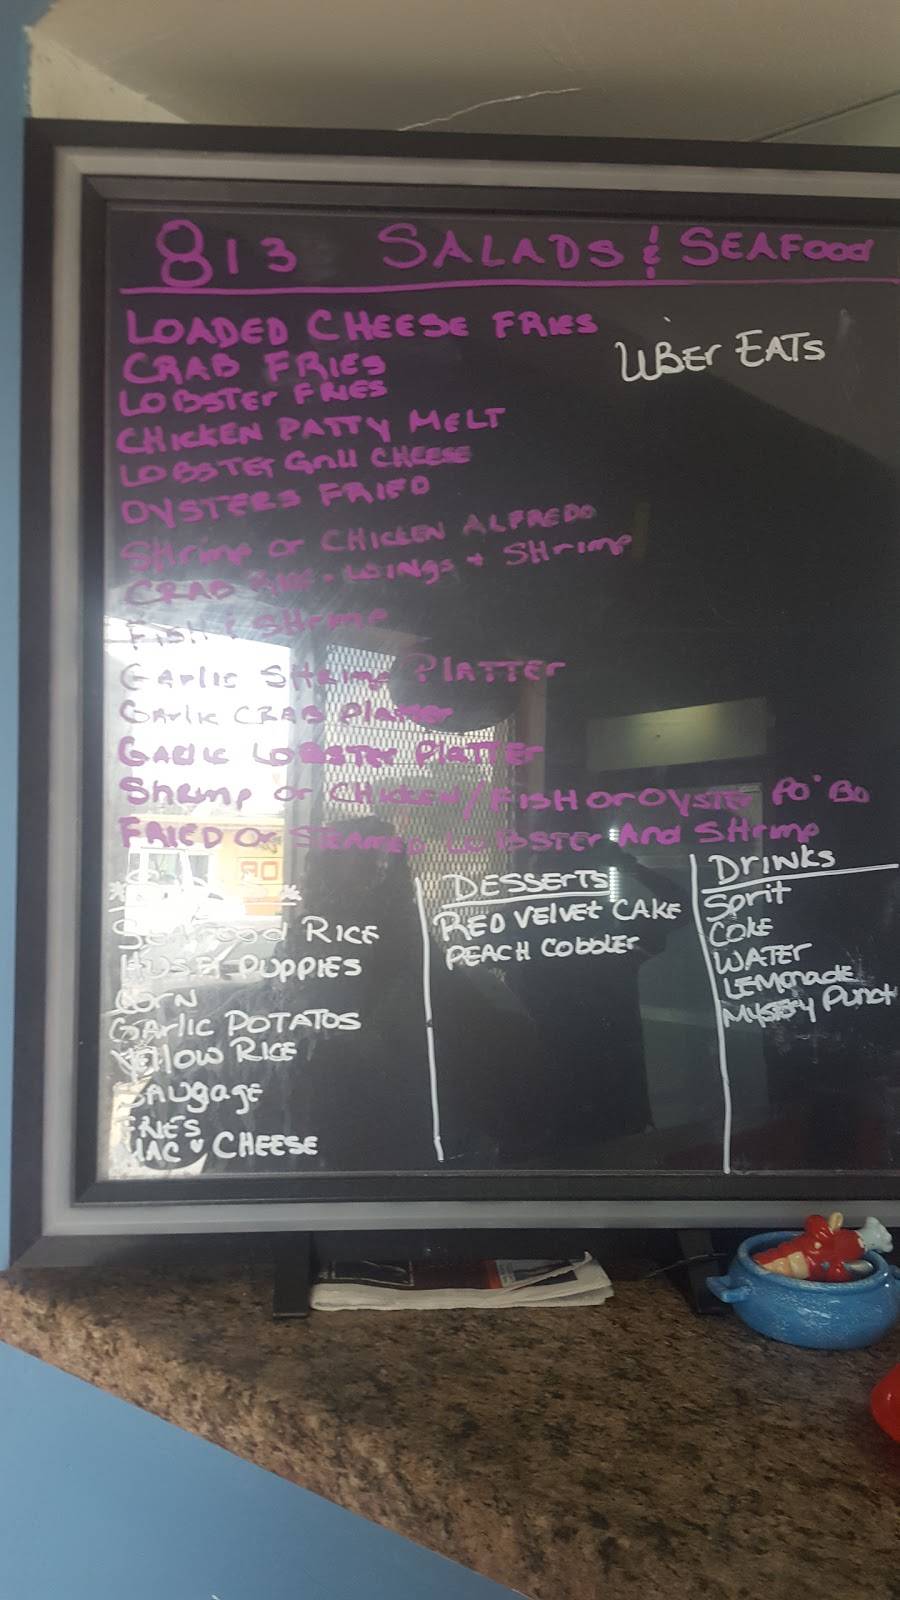 813 SALADS & SEAFOOD
LOADED CHEESE FRIES
UBER EATS
CRAB FRIES
LOBSTER FRIES
CHICKEN PATTY MELT
LOBSTER Grill CHEESE
OYSTERS FRIED
SHrimp or CHICKEN ALFREDO
CRAB Rice + WINgs + SHrimp
FISH & SHrimp
GArlic SHrimp PlATTER
GArlic CRAB PlATTER
GArlic LOBSTER PlATTER
SHrimp Or CHICKEN/FISH Or OYSTER PO' BO
FRIED Or STEAMED LOBSTER And SHrimp
SEAFood RICE
HUSH PUPPIES
CORN
GArlic POTATOS
YEllow RICE
SAUgage
FRIES
MAC & CHEESE
DESSERTS
RED VelveT CAKE
PEACH CobblEr
DrINKs
Sprit
COKE
WATER
LEMonade
MYSTEry Punch